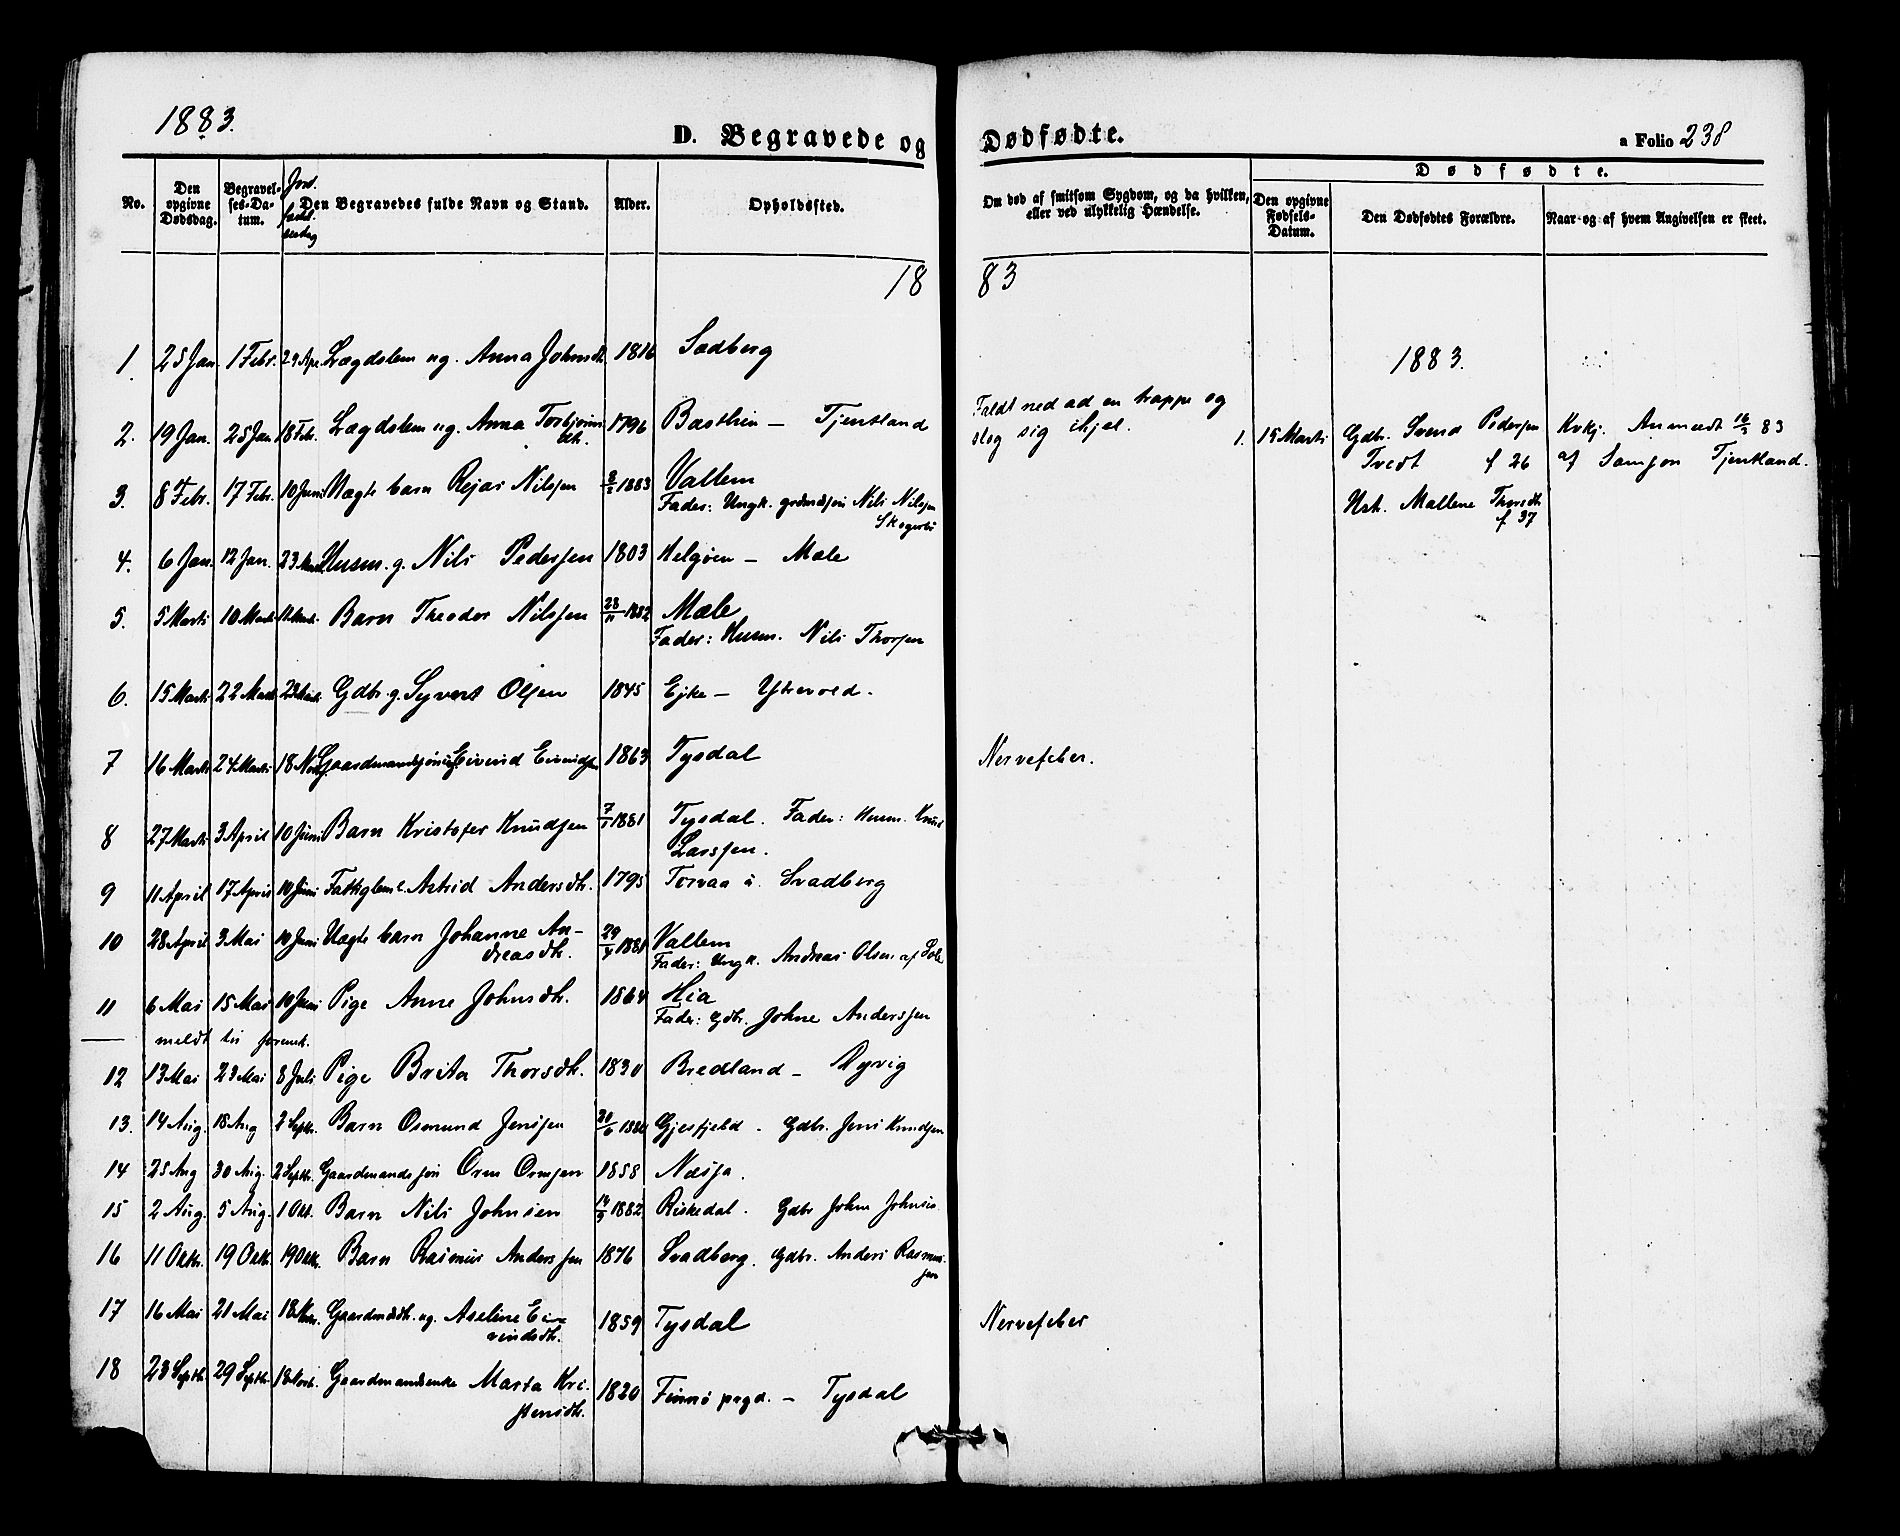 1883.
D. Begravede og Dødfødte.
a Folio 238
No.
Den opgivne Dødsdag.
Begravel-ses-Da-tum.
Den Begravedes fulde Navn og Stand.
Alder.
Opholdssted.
Om død af smitsom Sygdom, og da hvilken, eller ved ulykkelig Hændelse.
Dødfødte.
Den opgivne Fødsels-Datum.
Den Dødfødtes Forældre.
Naar og af hvem Angivelsen er skeet.
1883
1. 25 Jan. 1 Febr. 29 Apr. Lægdslem ug. Anna Johnsdt. 1816 Sadberg
1883.
2. 19 Jan. 25 Jan 18 Febr. Lægdslem ug. Anna Torbjørns dtr. 1796 Basthein - Tjentland
Faldt ned ad en trappe og
slog sig ihjel.
1. 15 Marts Gdbr. Svend Pedersen
Tvedt f 26
Hst. Mallene Thorsdt.
f 37
Kvkj. Anmeldt 16/3 83
af Samson Tjentland.
3. 8 Febr. 17 Febr. 10 Juni Uægte barn Rejar Nilsen 2/2 1883 Vallem
Fader: Ungk. grdmdsøn Nils Nilsen
4. 6 Jan. 12 Jan. 23 Husm. g. Nils Pedersen 1803 Helgøen - Mæle
5. 5 Marts 10 Marts Barn Theodor Nilsen 23/11 1882 Mæle
Fader: Husm. Nils Thorsen
6. 15 Marts 22 Marts 23 Marts Gdbr. g. Syvert Olsen 1845 Eike - Ytrevold.
7 16 Marts 24 Marts 18 Gaardmandssøn ug. Eivind Eivindsen 1863 Tysdal
Nervefeber.
8 27 Marts 3 April 10 Juni Barn Kristofer Knudsen 7/1 1881 Tysdal. Fader: Husm. Knud
Larssen.
9 11 April 17 April 10 Juni Fattiglem e. Astrid Andersdt. 1795 Torvaa i Svadberg
10 28 April 3 Mai 10 Juni Uægte barn Johanne An-
dreasdt. 29/4 1881 Vallem
Fader: Ungk. Andreas Olsen af
11 6 Mai 15 Mai 10 Juni Pige Anne Johnsdt. 1864 Hia
Fader: Gdbr. Johne Anderssen
meldt til
12 13 Mai 23 Mai 8 Juli Pige Brita Thorsdt. 1830 Bredland - Dyvig
13. 14 Aug. 18 Aug 2 Septbr. Barn Osmund Jensen Gjesfjeld. Gdbr. Jens Knudsen
14 25 Aug 30 Aug. 2 Septbr. Gaardmandssøn Orm Ormsen 1858 Næsja.
15 2 Aug. 5 Aug. 1 Okt. Barn Nils Johnsen 14/9 1882 Riskedal. Gdbr John Johnsen
16 11 Oktbr. 19 Oktb. 19 Oktbr. Barn Rasmus Anderssen 1876 Svadberg. Gdbr. Anders Rasmus-
sen
17 16 Mai 21 Mai 18 Gaardmdsdt. ug. Aseline Ei-
vindsdt. 1859 Tysdal
Nervefeber
18 23 Septbr. 29 Septbr. 18 Novb. Gaardmandsenke Marta Kri-
stensdt. 1820 Finnø prgd. - Tysdal